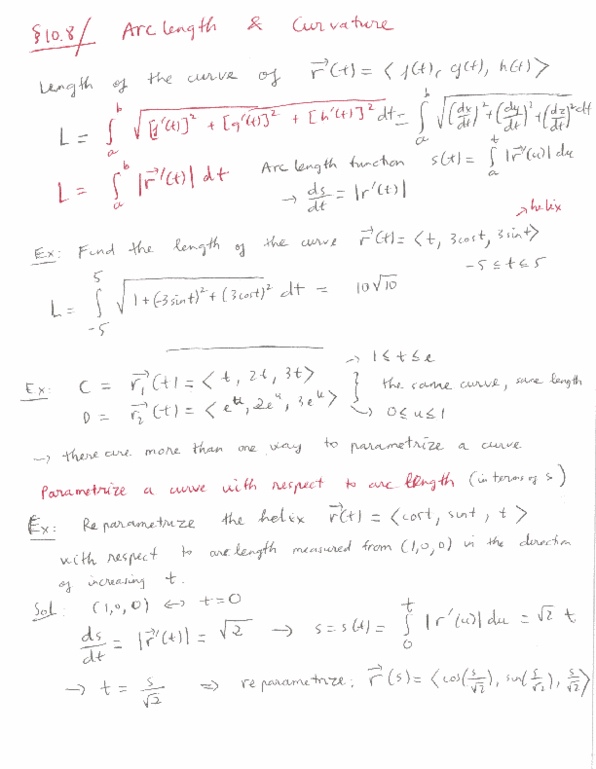 §10.8/ Arc length & Curvature
Length of the curve of r⃗(t) = ⟨f(t), g(t), h(t)⟩
L = ∫_a^b √([f'(t)]² + [g'(t)]² + [h'(t)]²) dt = ∫_a^b √((dx/dt)² + (dy/dt)² + (dz/dt)²) dt
L = ∫_a^b |r⃗'(t)| dt Arc length function s(t) = ∫_a^t |r⃗'(u)| du
→ ds/dt = |r'(t)|
→ helix
Ex: Find the length of the curve r⃗(t) = ⟨t, 3cost, 3sint⟩
-5 ≤ t ≤ 5
L = ∫_{-5}^5 √(1+(-3sint)²+(3cost)²) dt = 10√10
→ 1 ≤ t ≤ e
Ex: C = r⃗₁(t) = ⟨t, 2t, 3t⟩
} the same curve, same length
D = r⃗₂(t) = ⟨e^u, 2e^u, 3e^u⟩
→ 0 ≤ u ≤ 1
→ there are more than one way to parametrize a curve
Parametrize a curve with respect to arc length (in terms of s)
Ex: Reparametrize the helix r⃗(t) = ⟨cost, sint, t⟩
with respect to arc length measured from (1,0,0) in the direction
of increasing t.
Sol: (1,0,0) ↔ t=0
ds/dt = |r⃗'(t)| = √2 → s = s(t) = ∫_0^t |r'(u)| du = √2 t
→ t = s/√2 ⇒ reparametrize: r⃗(s) = ⟨cos(s/√2), sin(s/√2), s/√2⟩